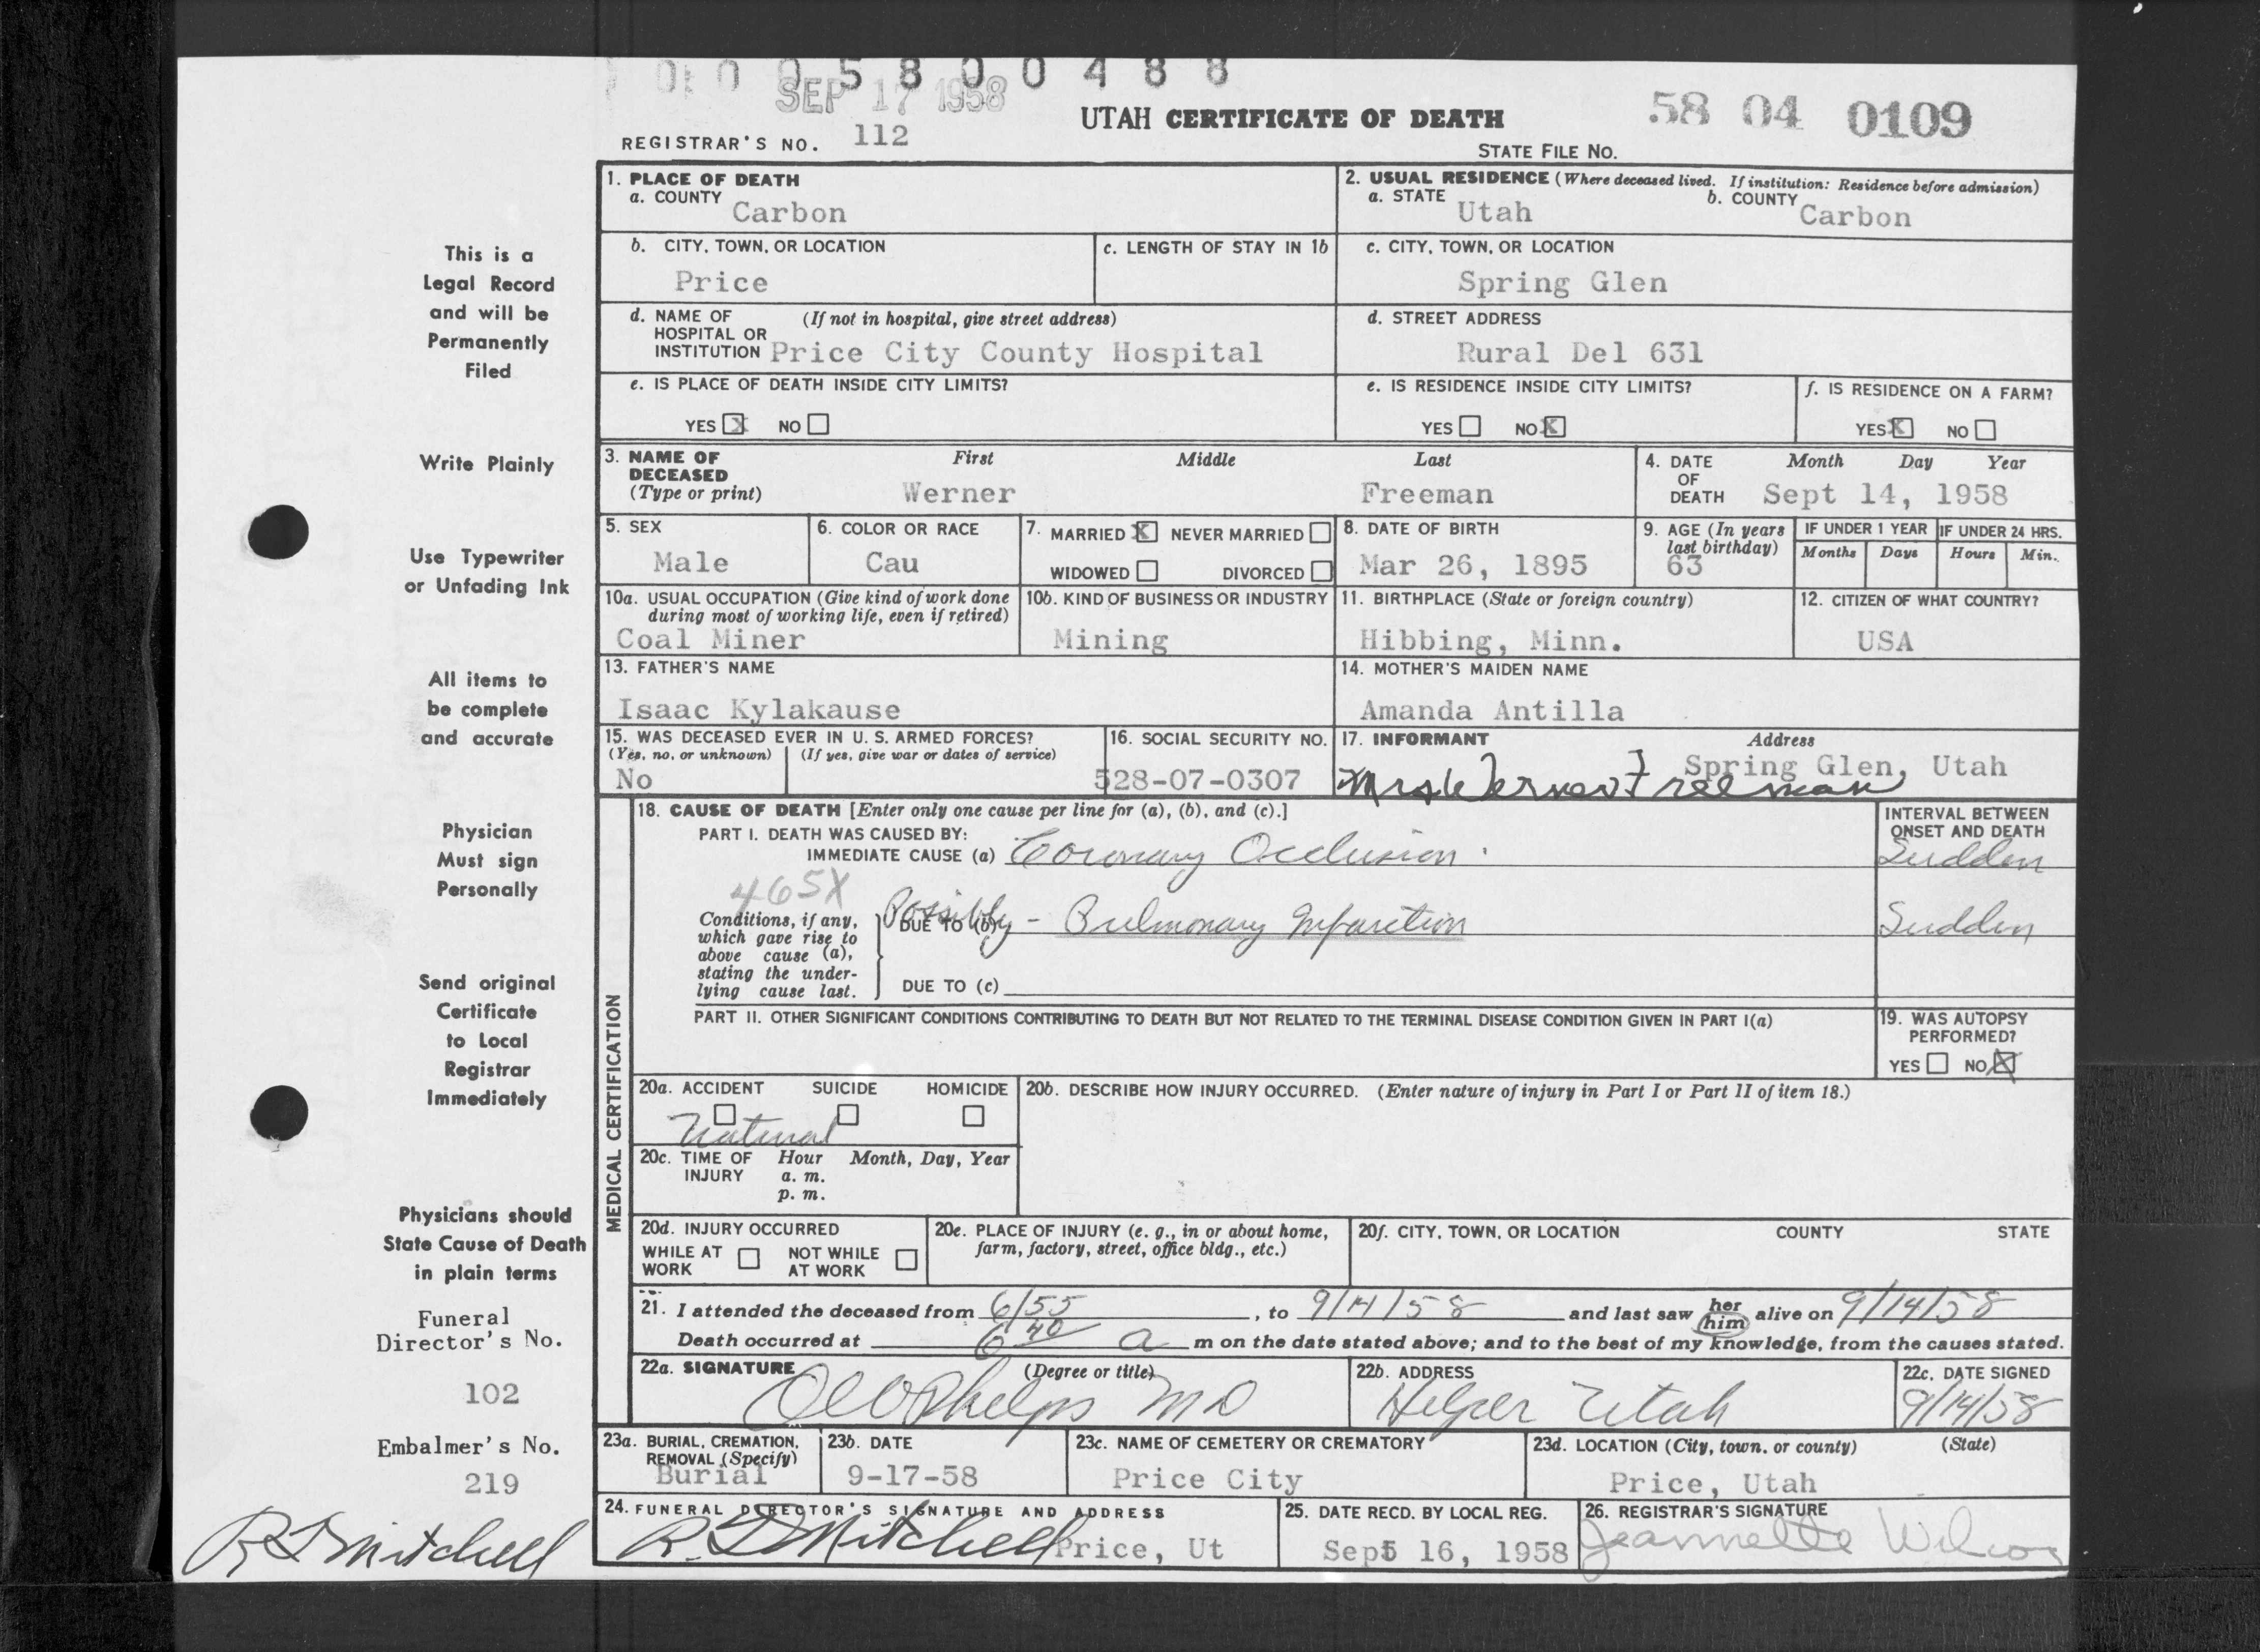 0 0 0 5 8 0 0 4 8 8
SEP 17 1958
UTAH CERTIFICATE OF DEATH
58 04 0109
REGISTRAR'S NO. 112
STATE FILE NO.
1. PLACE OF DEATH
a. COUNTY Carbon
2. USUAL RESIDENCE (Where deceased lived. If institution: Residence before admission)
a. STATE Utah b. COUNTY Carbon
b. CITY, TOWN, OR LOCATION Price
c. LENGTH OF STAY IN 1b
c. CITY, TOWN, OR LOCATION Spring Glen
d. NAME OF HOSPITAL OR INSTITUTION (If not in hospital, give street address) Price City County Hospital
d. STREET ADDRESS Rural Del 631
e. IS PLACE OF DEATH INSIDE CITY LIMITS?
YES X NO
e. IS RESIDENCE INSIDE CITY LIMITS?
YES NO X
f. IS RESIDENCE ON A FARM?
YES X NO
3. NAME OF DECEASED (Type or print)
First Middle Last
Werner Freeman
4. DATE OF DEATH Month Day Year
Sept 14, 1958
5. SEX Male
6. COLOR OR RACE Cau
7. MARRIED X NEVER MARRIED
WIDOWED DIVORCED
8. DATE OF BIRTH Mar 26, 1895
9. AGE (In years last birthday) 63
IF UNDER 1 YEAR Months Days
IF UNDER 24 HRS. Hours Min.
10a. USUAL OCCUPATION (Give kind of work done during most of working life, even if retired)
Coal Miner
10b. KIND OF BUSINESS OR INDUSTRY
Mining
11. BIRTHPLACE (State or foreign country)
Hibbing, Minn.
12. CITIZEN OF WHAT COUNTRY?
USA
13. FATHER'S NAME
Isaac Kylakause
14. MOTHER'S MAIDEN NAME
Amanda Antilla
15. WAS DECEASED EVER IN U. S. ARMED FORCES?
(Yes, no, or unknown) (If yes, give war or dates of service)
No
16. SOCIAL SECURITY NO.
528-07-0307
17. INFORMANT Address
Mrs Werner Freeman Spring Glen, Utah
MEDICAL CERTIFICATION
18. CAUSE OF DEATH [Enter only one cause per line for (a), (b), and (c).]
INTERVAL BETWEEN ONSET AND DEATH
PART I. DEATH WAS CAUSED BY:
IMMEDIATE CAUSE (a) Coronary Occlusion Sudden
465X
Conditions, if any, which gave rise to above cause (a), stating the underlying cause last.
DUE TO (b) Possibly - Pulmonary Infarction Sudden
DUE TO (c)
PART II. OTHER SIGNIFICANT CONDITIONS CONTRIBUTING TO DEATH BUT NOT RELATED TO THE TERMINAL DISEASE CONDITION GIVEN IN PART I(a)
19. WAS AUTOPSY PERFORMED?
YES NO X
20a. ACCIDENT SUICIDE HOMICIDE
Natural
20b. DESCRIBE HOW INJURY OCCURRED. (Enter nature of injury in Part I or Part II of item 18.)
20c. TIME OF INJURY Hour Month, Day, Year
a. m.
p. m.
20d. INJURY OCCURRED
WHILE AT WORK NOT WHILE AT WORK
20e. PLACE OF INJURY (e. g., in or about home, farm, factory, street, office bldg., etc.)
20f. CITY, TOWN, OR LOCATION COUNTY STATE
21. I attended the deceased from 6/55, to 9/14/58 and last saw her him alive on 9/14/58
Death occurred at 6 40 a m on the date stated above; and to the best of my knowledge, from the causes stated.
22a. SIGNATURE (Degree or title)
Phelps MD
22b. ADDRESS
Helper Utah
22c. DATE SIGNED
9/14/58
23a. BURIAL, CREMATION, REMOVAL (Specify)
Burial
23b. DATE
9-17-58
23c. NAME OF CEMETERY OR CREMATORY
Price City
23d. LOCATION (City, town, or county) (State)
Price, Utah
24. FUNERAL DIRECTOR'S SIGNATURE AND ADDRESS
Mitchell Price, Ut
25. DATE RECD. BY LOCAL REG.
Sept 16, 1958
26. REGISTRAR'S SIGNATURE
Jeannette Wilcox
This is a
Legal Record
and will be
Permanently
Filed
Write Plainly
Use Typewriter
or Unfading Ink
All items to
be complete
and accurate
Physician
Must sign
Personally
Send original
Certificate
to Local
Registrar
Immediately
Physicians should
State Cause of Death
in plain terms
Funeral
Director's No.
102
Embalmer's No.
219
Mitchell